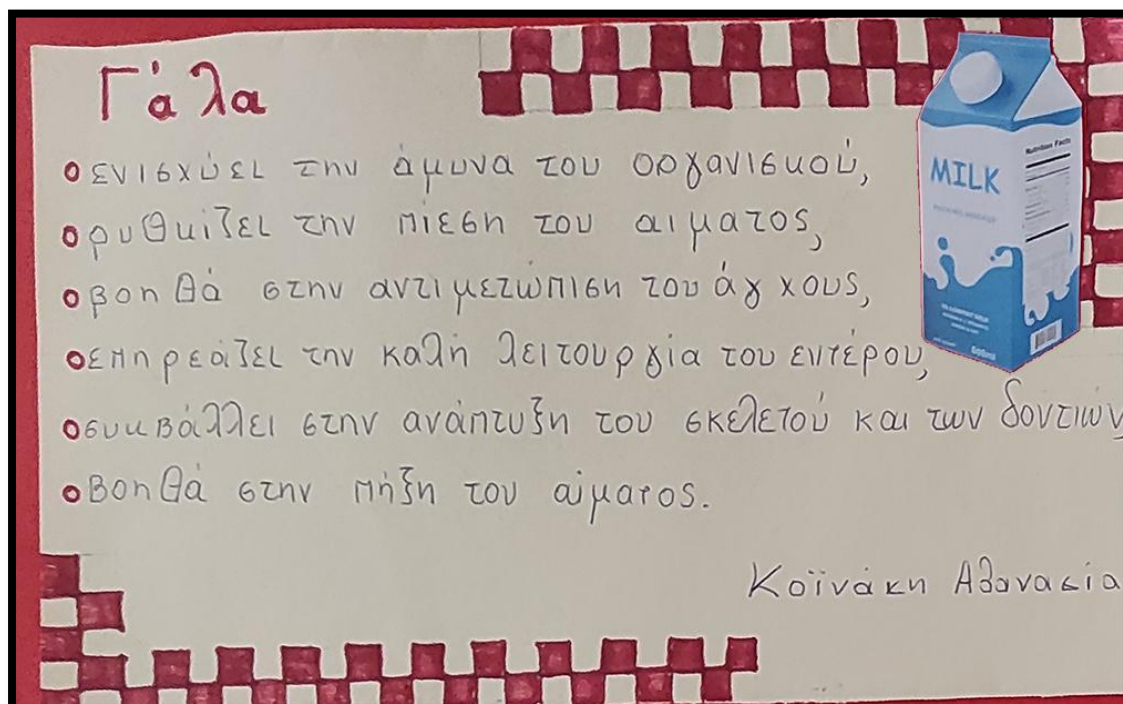 Γάλα
ενισχύει την άμυνα του οργανισμού,
ρυθμίζει την πίεση του αιματος,
βοηθά στην αντιμετώπιση του άγχους,
επηρεάζει την καλή λειτουργία του εντέρου,
συμβάλλει στην ανάπτυξη του σκελετού και των δοντιών,
βοηθά στην πήξη του αίματος.
Κοϊνάκη Αθανασία
MILK
Nutrition Facts
500ml